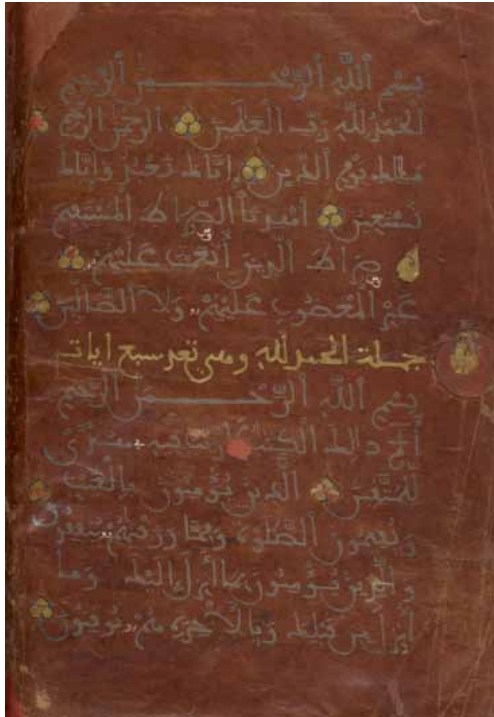 بسم الله الرحمن الرحيم
الحمد لله رب العلمين الرحمن الرحيم
ملك يوم الدين إياك نعبد وإياك
نستعين اهدنا الصراط المستقيم
صراط الذين أنعمت عليهم
غير المغضوب عليهم ولا الضالين
جملة الحمد لله وهي تعد سبع ايات
بسم الله الرحمن الرحيم
الم ذلك الكتب لا ريب فيه هدى
للمتقين الذين يؤمنون بالغيب
ويقيمون الصلوة ومما رزقنهم ينفقون
والذين يؤمنون بما أنزل إليك وما
أنزل من قبلك وبالأخرة هم يوقنون